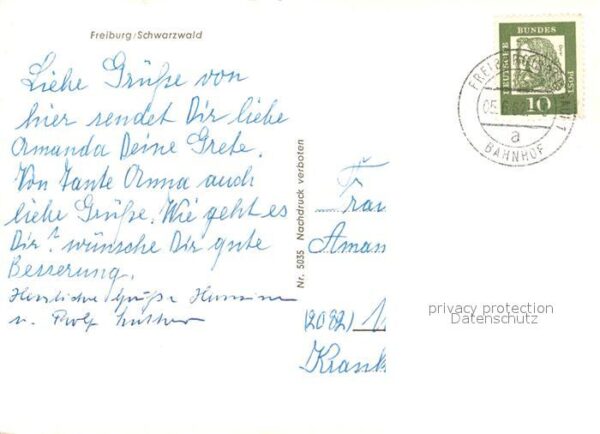 Freiburg/Schwarzwald
Liebe Grüße von
hier sendet Dir liebe
Amanda Deine Grete.
Von Tante Anna auch
liebe Grüße. Wie geht es
Dir? wünsche Dir gute
Besserung.
Herzliche Grüße
u. Rolf
Nr. 5035 Nachdruck verboten
DEUTSCHE BUNDES POST
10
a
BAHNHOF
Frau
Aman
(2082)
Krank
privacy protection
Datenschutz